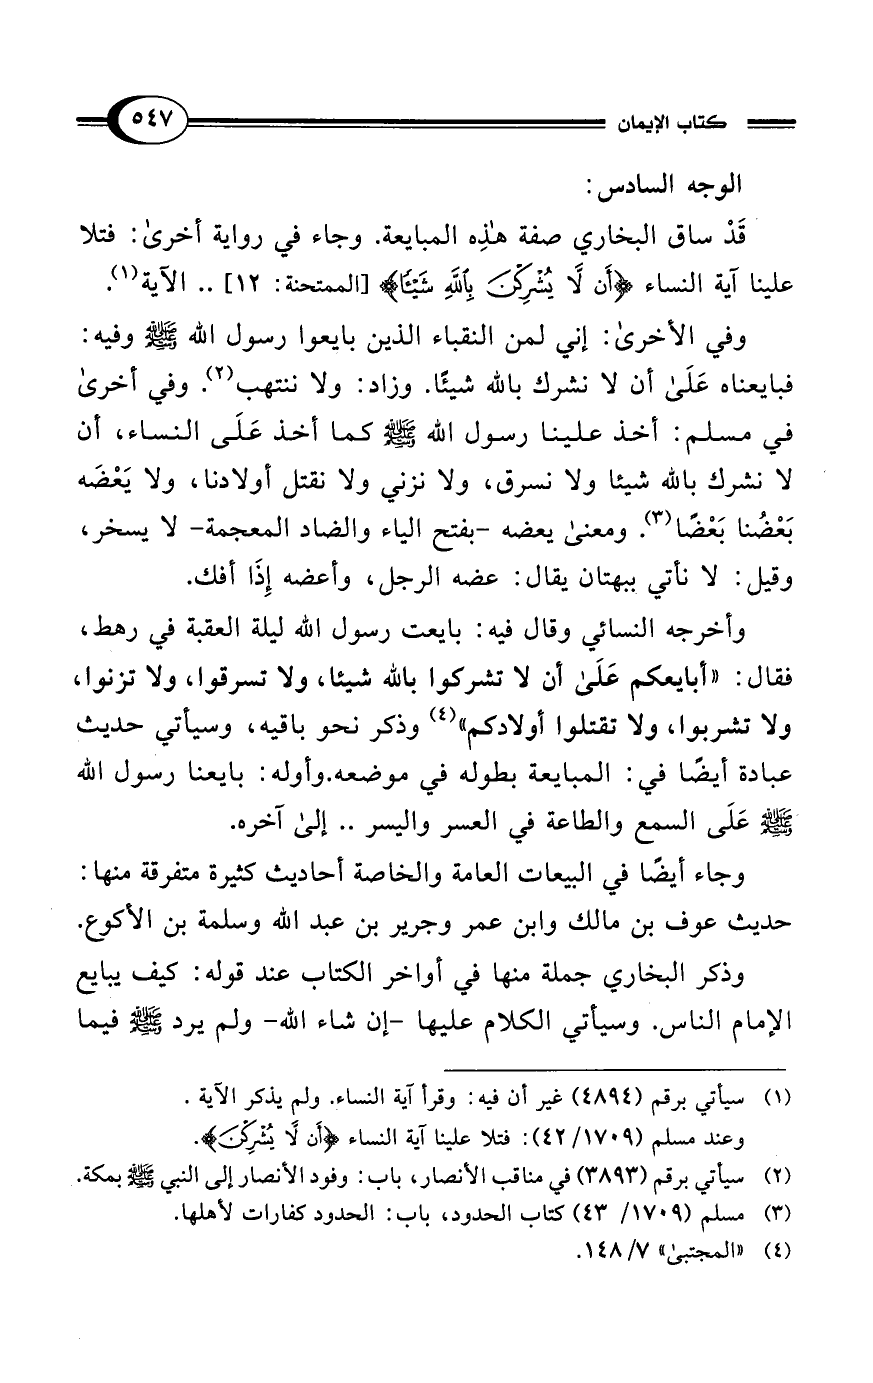 كتاب الإيمان ٥٤٧
الوجه السادس:
قَدْ ساق البخاري صفة هذِه المبايعة. وجاء في رواية أخرىٰ: فتلا
علينا آية النساء ﴿أَن لَّا يُشْرِكْنَ بِٱللَّهِ شَيْـًٔا﴾ [الممتحنة: ١٢] .. الآية(١).
وفي الأخرىٰ: إني لمن النقباء الذين بايعوا رسول الله ﷺ وفيه:
فبايعناه عَلَىٰ أن لا نشرك بالله شيئًا. وزاد: ولا ننتهب(٢). وفي أخرىٰ
في مسلم: أخذ علينا رسول الله ﷺ كما أخذ عَلَى النساء، أن
لا نشرك بالله شيئا ولا نسرق، ولا نزني ولا نقتل أولادنا، ولا يَعْضَه
بَعْضُنا بَعْضًا(٣). ومعنىٰ يعضه -بفتح الياء والضاد المعجمة- لا يسخر،
وقيل: لا نأتي ببهتان يقال: عضه الرجل، وأعضه إِذَا أفك.
وأخرجه النسائي وقال فيه: بايعت رسول الله ليلة العقبة في رهط،
فقال: «أبايعكم عَلَىٰ أن لا تشركوا بالله شيئا، ولا تسرقوا، ولا تزنوا،
ولا تشربوا، ولا تقتلوا أولادكم»(٤) وذكر نحو باقيه، وسيأتي حديث
عبادة أيضًا في: المبايعة بطوله في موضعه.وأوله: بايعنا رسول الله
ﷺ عَلَى السمع والطاعة في العسر واليسر .. إلىٰ آخره.
وجاء أيضًا في البيعات العامة والخاصة أحاديث كثيرة متفرقة منها:
حديث عوف بن مالك وابن عمر وجرير بن عبد الله وسلمة بن الأكوع.
وذكر البخاري جملة منها في أواخر الكتاب عند قوله: كيف يبايع
الإمام الناس. وسيأتي الكلام عليها -إن شاء الله- ولم يرد ﷺ فيما
(١) سيأتي برقم (٤٨٩٤) غير أن فيه: وقرأ آية النساء. ولم يذكر الآية .
وعند مسلم (٤٢/١٧٠٩): فتلا علينا آية النساء ﴿أَن لَّا يُشْرِكْنَ﴾.
(٢) سيأتي برقم (٣٨٩٣) في مناقب الأنصار، باب: وفود الأنصار إلى النبي ﷺ بمكة.
(٣) مسلم (١٧٠٩/ ٤٣) كتاب الحدود، باب: الحدود كفارات لأهلها.
(٤) «المجتبىٰ» ٧/ ١٤٨.